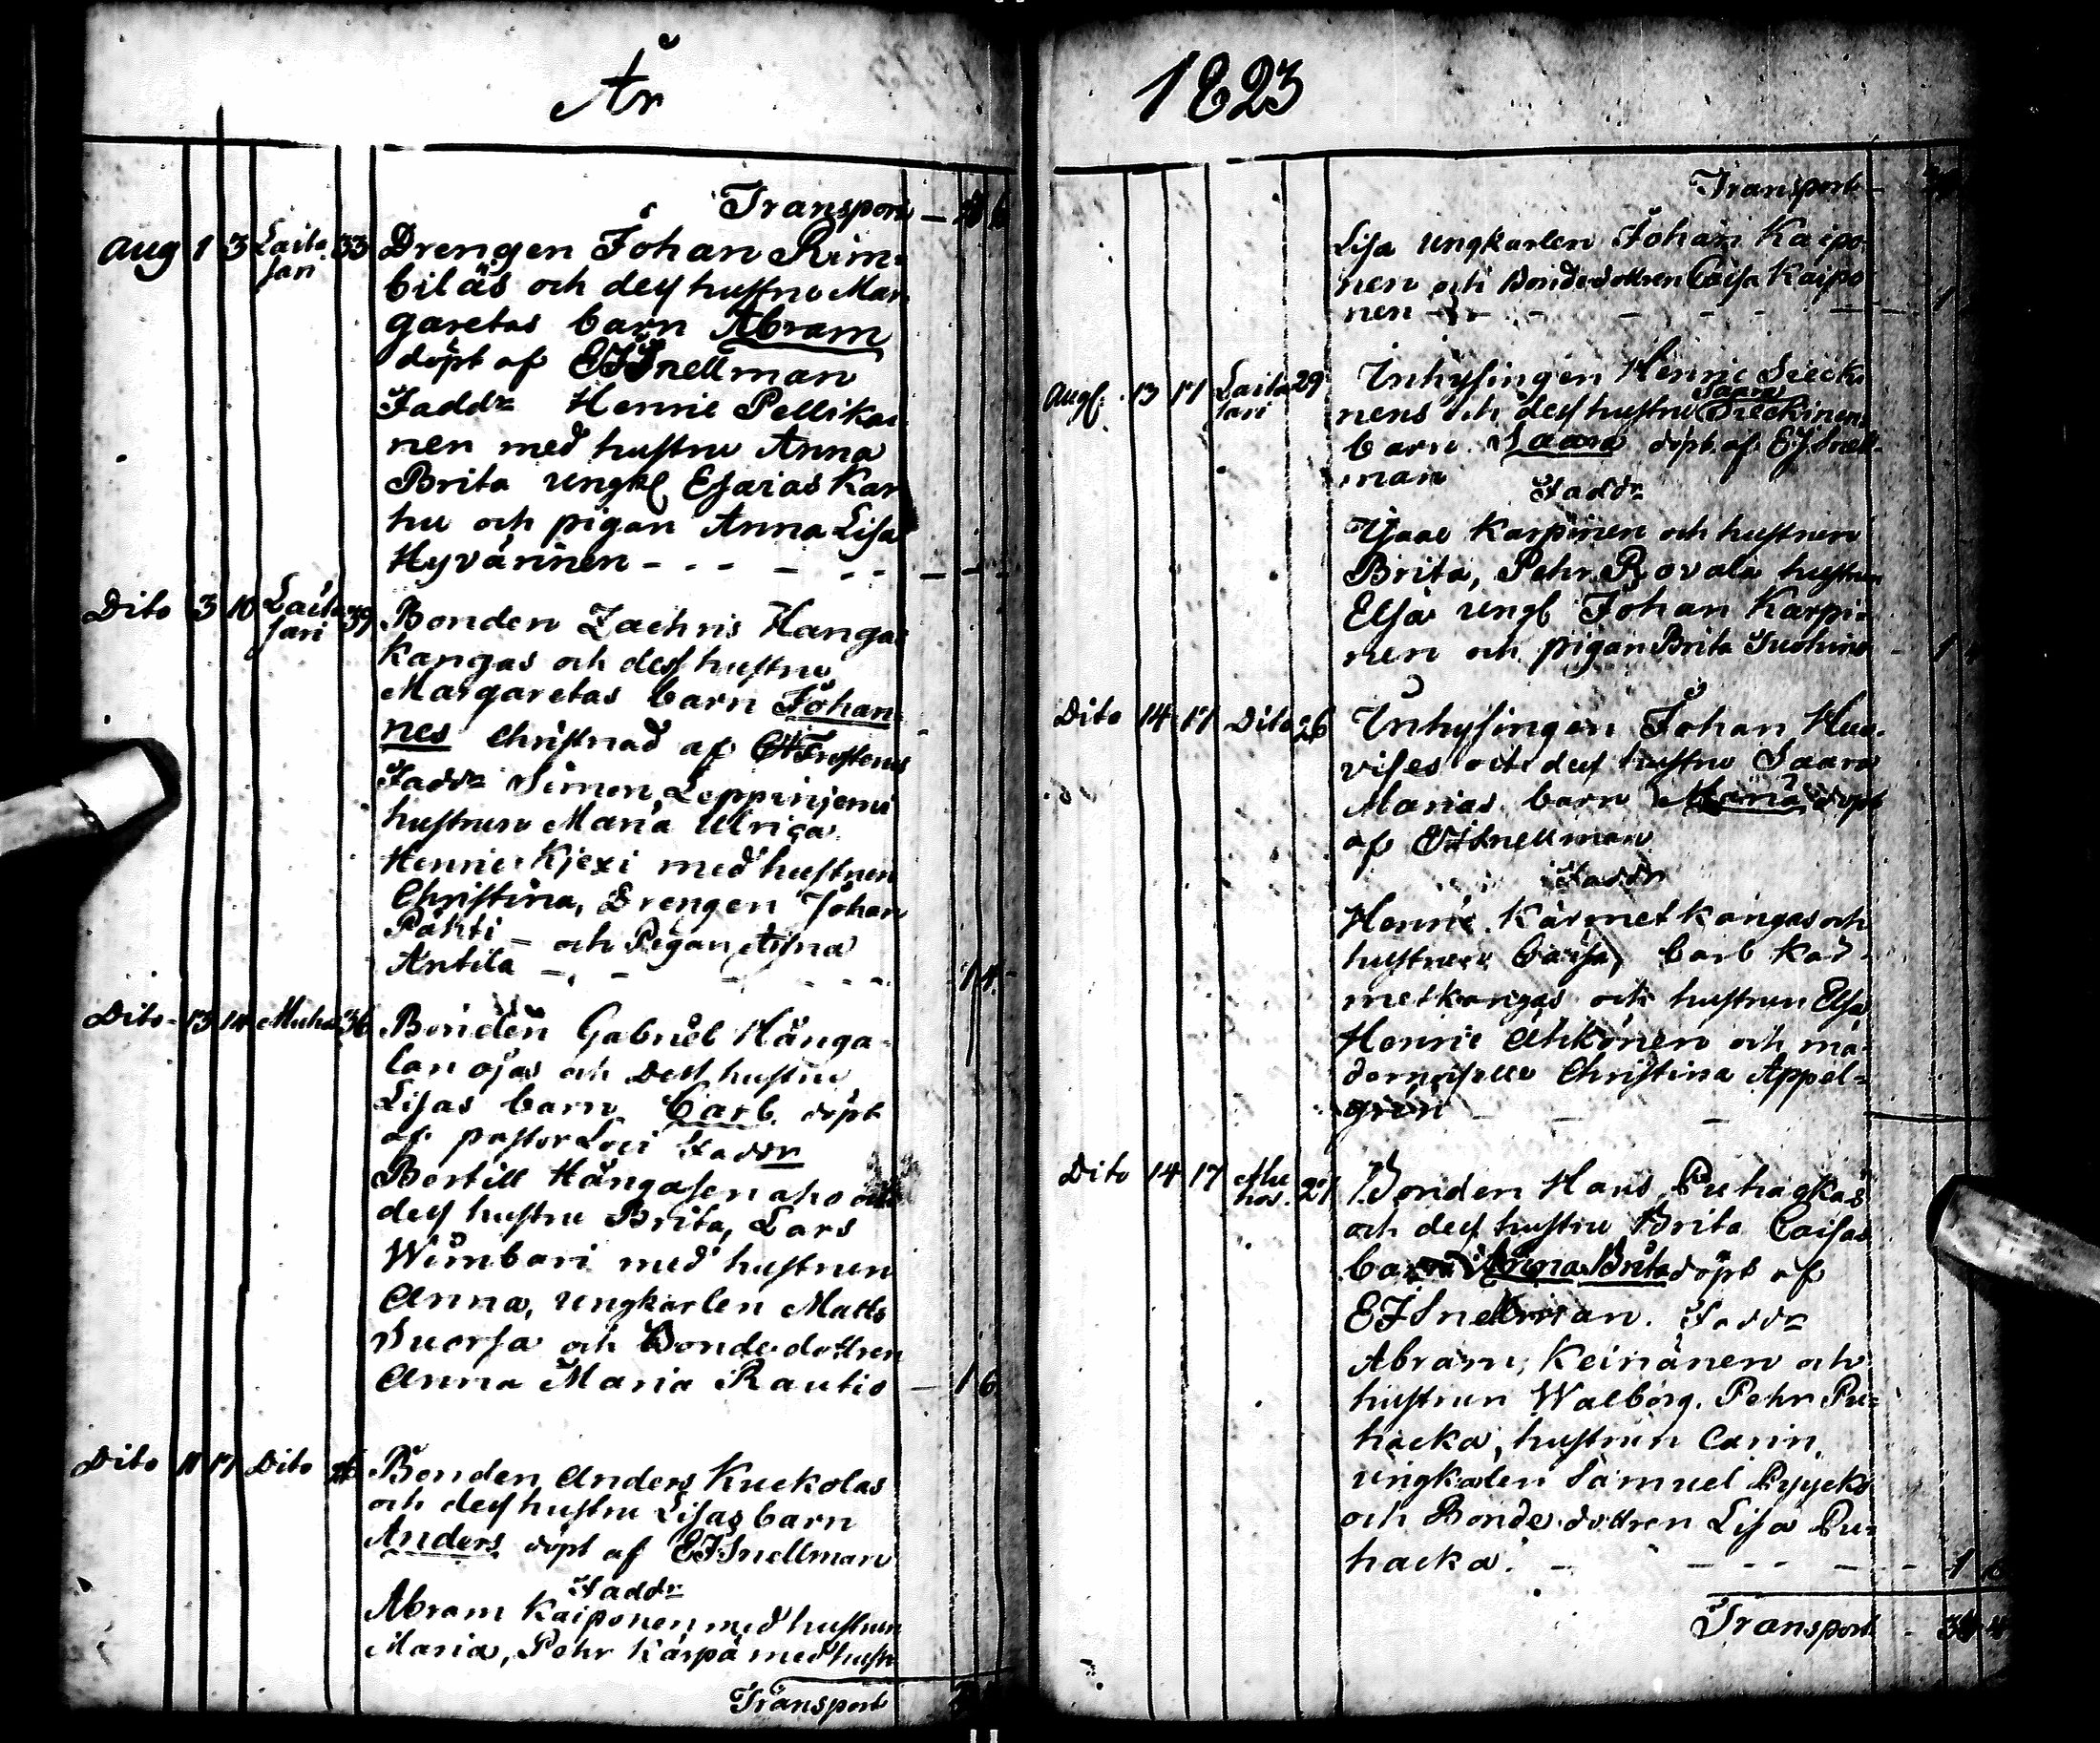 År
Transport
Aug 1 3 Laita 33 Drengen Johan Kim=
sari biläs och dess hustru Mar
garetas barn Abram
döpt af EJSnellman
Faddr Henric Pellikai
nen med hustru Anna
Brita ungkl Esaias Kar
hu och pigan Anna Lisa
Hyvärinen - - - - - -
Dito 3 10 Laita 39 Bonden Zachris Hangas
sari kangas och dess hustru
Margaretas barn Johan
nes Christnad af
Faddr Simon Leppinjemi
hustrun Maria Ulrica
Henric Kjexi med hustrun
Christina, Drengen Johan
Pähti - och Pigan Anna
Antila - - - - - - 1 4 -
Dito 13 14 Muhos 36 Bonden Gabriel Hänga
lan ojas och Dess hustru
Lisas barn Carl döpt
af pastor Loci Faddr
Bertill Hängasen aho och
dess hustru Brita, Lars
Wimbari med hustrun
Anna, ungkarlen Matts
Suorsa och Bondedottren
Anna Maria Rautio - 1 6
Dito 11 17 Dito Bonden Anders Kuckolas
och dess hustru Lisas barn
Anders döpt af EJSnellman
Faddr
Abram Kaiponen med hustrun
Maria, Pehr Kärpä med hustr
Transport
1823
Transport
Lisa ungkarlen Johan Kaipo
nen och Bondedottren Caisa Kaipo
nen - - - - - 1
Aug 13 17 Laita 29 Inhysingen Henric Siecki
sari nens och dess hustru Saara Sieckinens
barn Saara döpt af EJSnell
man Faddr
Isaac Karpinen och hustrun
Brita, Pehr Rovala hustrun
Elsa ungl Johan Karpi=
nen och pigan Brita Tuohino - 1
Dito 14 17 Dito 26 Inhysingen Johan Huo
vises och dess hustru Saara
Marias barn Maria döpt
af EJSnellman
Faddr
Henric Kärmetkangas och
hustrun Caisa, Carl Kär
metkangas och hustrun Elsa
Henric Ahkonen och ma
demoiselle Christina Appel=
gren - - -
Dito 14 17 Mu 27 Bonden Hans Puhackas
hos. och dess hustru Brita Caisas
barn Anna Brita döpt af
EJSnellman. Faddr
Abram Keinänen och
hustrun Walborg. Pehr Pu=
hacka, hustrun Carin,
ungkarlen Samuel Pyyckö
och Bondedottren Lisa Pu=
hacka. - - - - - 1
Transport